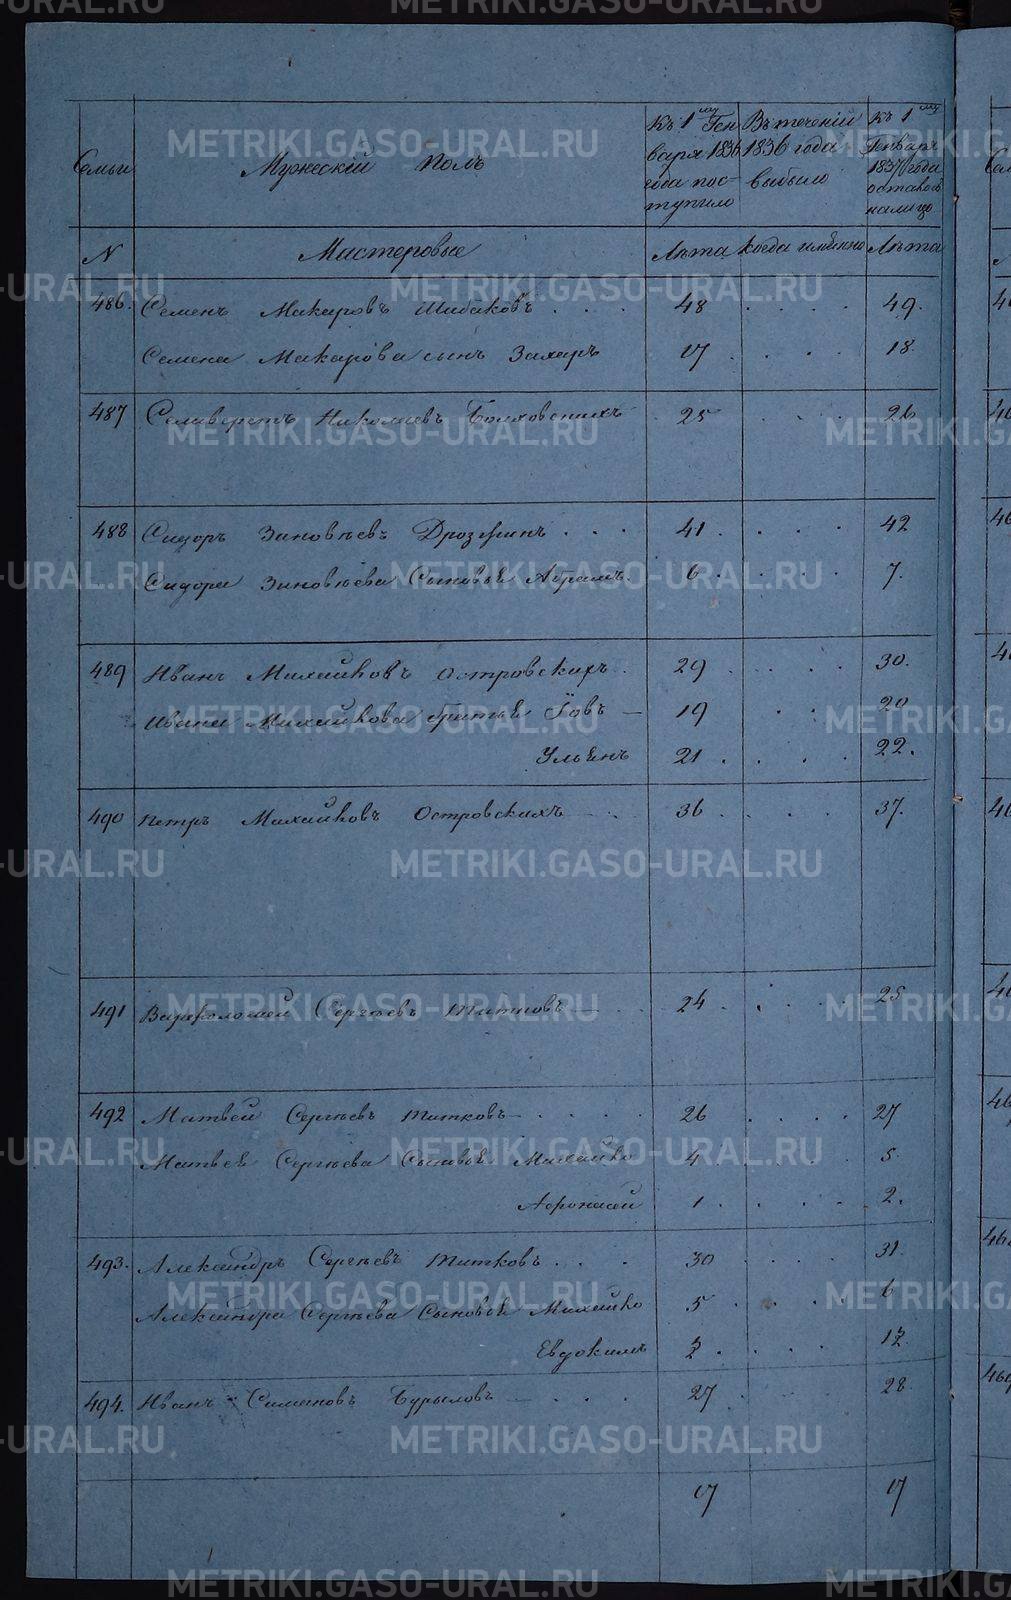 METRIKI.GASO-URAL.RU
Семьи
Мужескій Полъ
Къ 1му Ген
варя 1836
года пос-
тупило
Въ теченіи
1836 года
выбыло
Къ 1му
Генваря
1837 года
осталось
на лицо
N Мастеровые Лѣта когда именно Лѣта
486. Семенъ Макаровъ Шибаковъ . . . 48 49.
Семена Макарова сынъ Захаръ 17 18.
487 Селиверстъ Николаевъ 25 26
488 Сидоръ Зиновьевъ Дрозжинъ . . . 41 42
Сидора Зиновьева Сыновья Абрамъ. 6 7.
489 Иванъ Михайловъ Островскихъ . . 29 30.
Ивана Михайлова братья Іовъ — 19 20
Ульянъ 21 22.
490 Петръ Михайловъ Островскихъ — 36 37.
491 Варфоломей Сергѣевъ Титковъ — 24 25
492 Матвей Сергѣевъ Титковъ — 26 27
Матвея Сергѣева Сыновья Михайло 4 5.
Афонасей 1 2.
493. Александръ Сергѣевъ Титковъ . . . 30 31.
Александра Сергѣева Сыновья Михайло 5 6
Евдокимъ
494. Иванъ Симоновъ Бурыловъ — 27 28
17 17